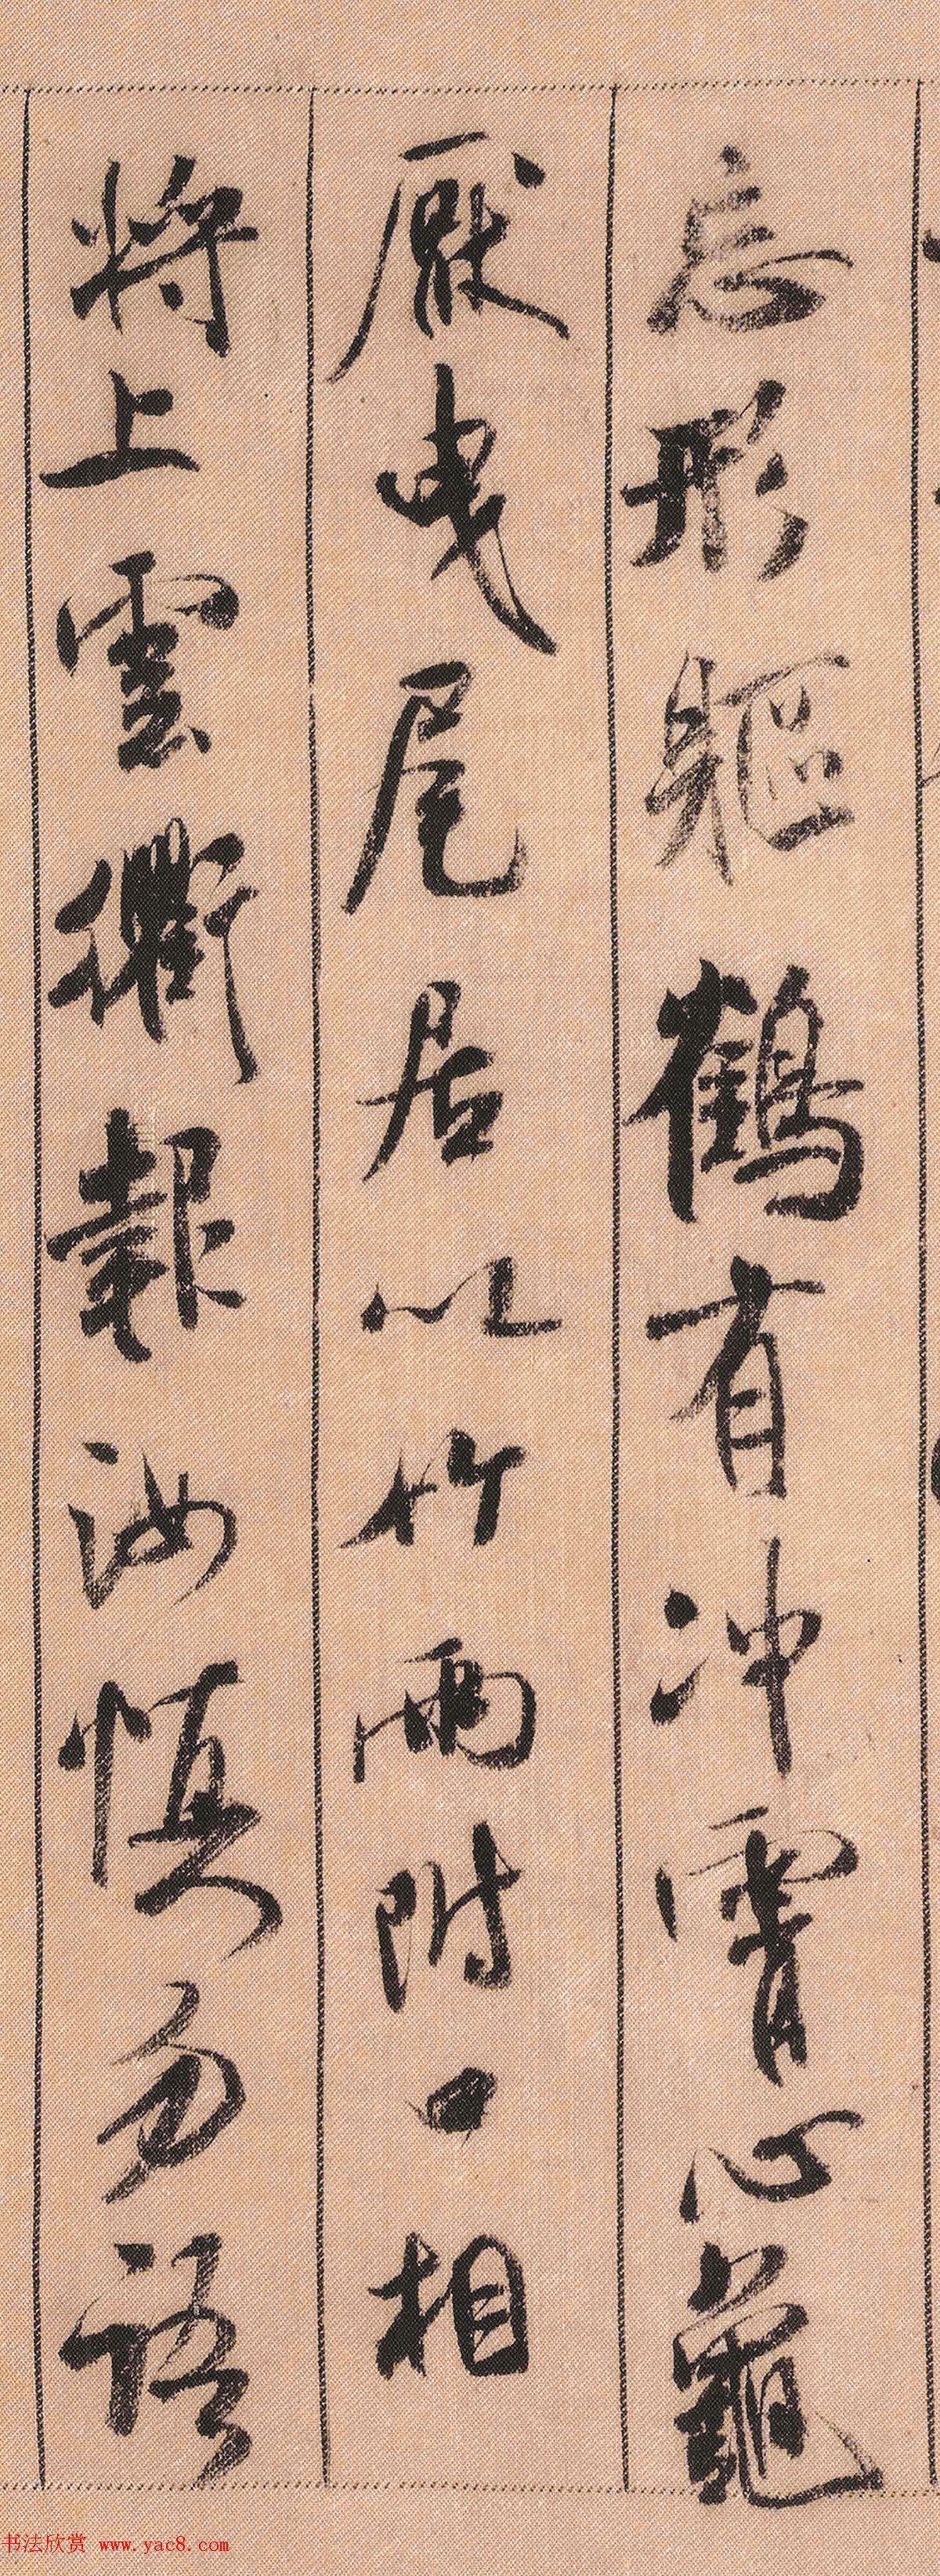 忘形軀鶴有沖霄心龜
厭曳尾居以竹兩附口相
將上雲衢報汝慎勿語
书法欣赏 www.yac8.com